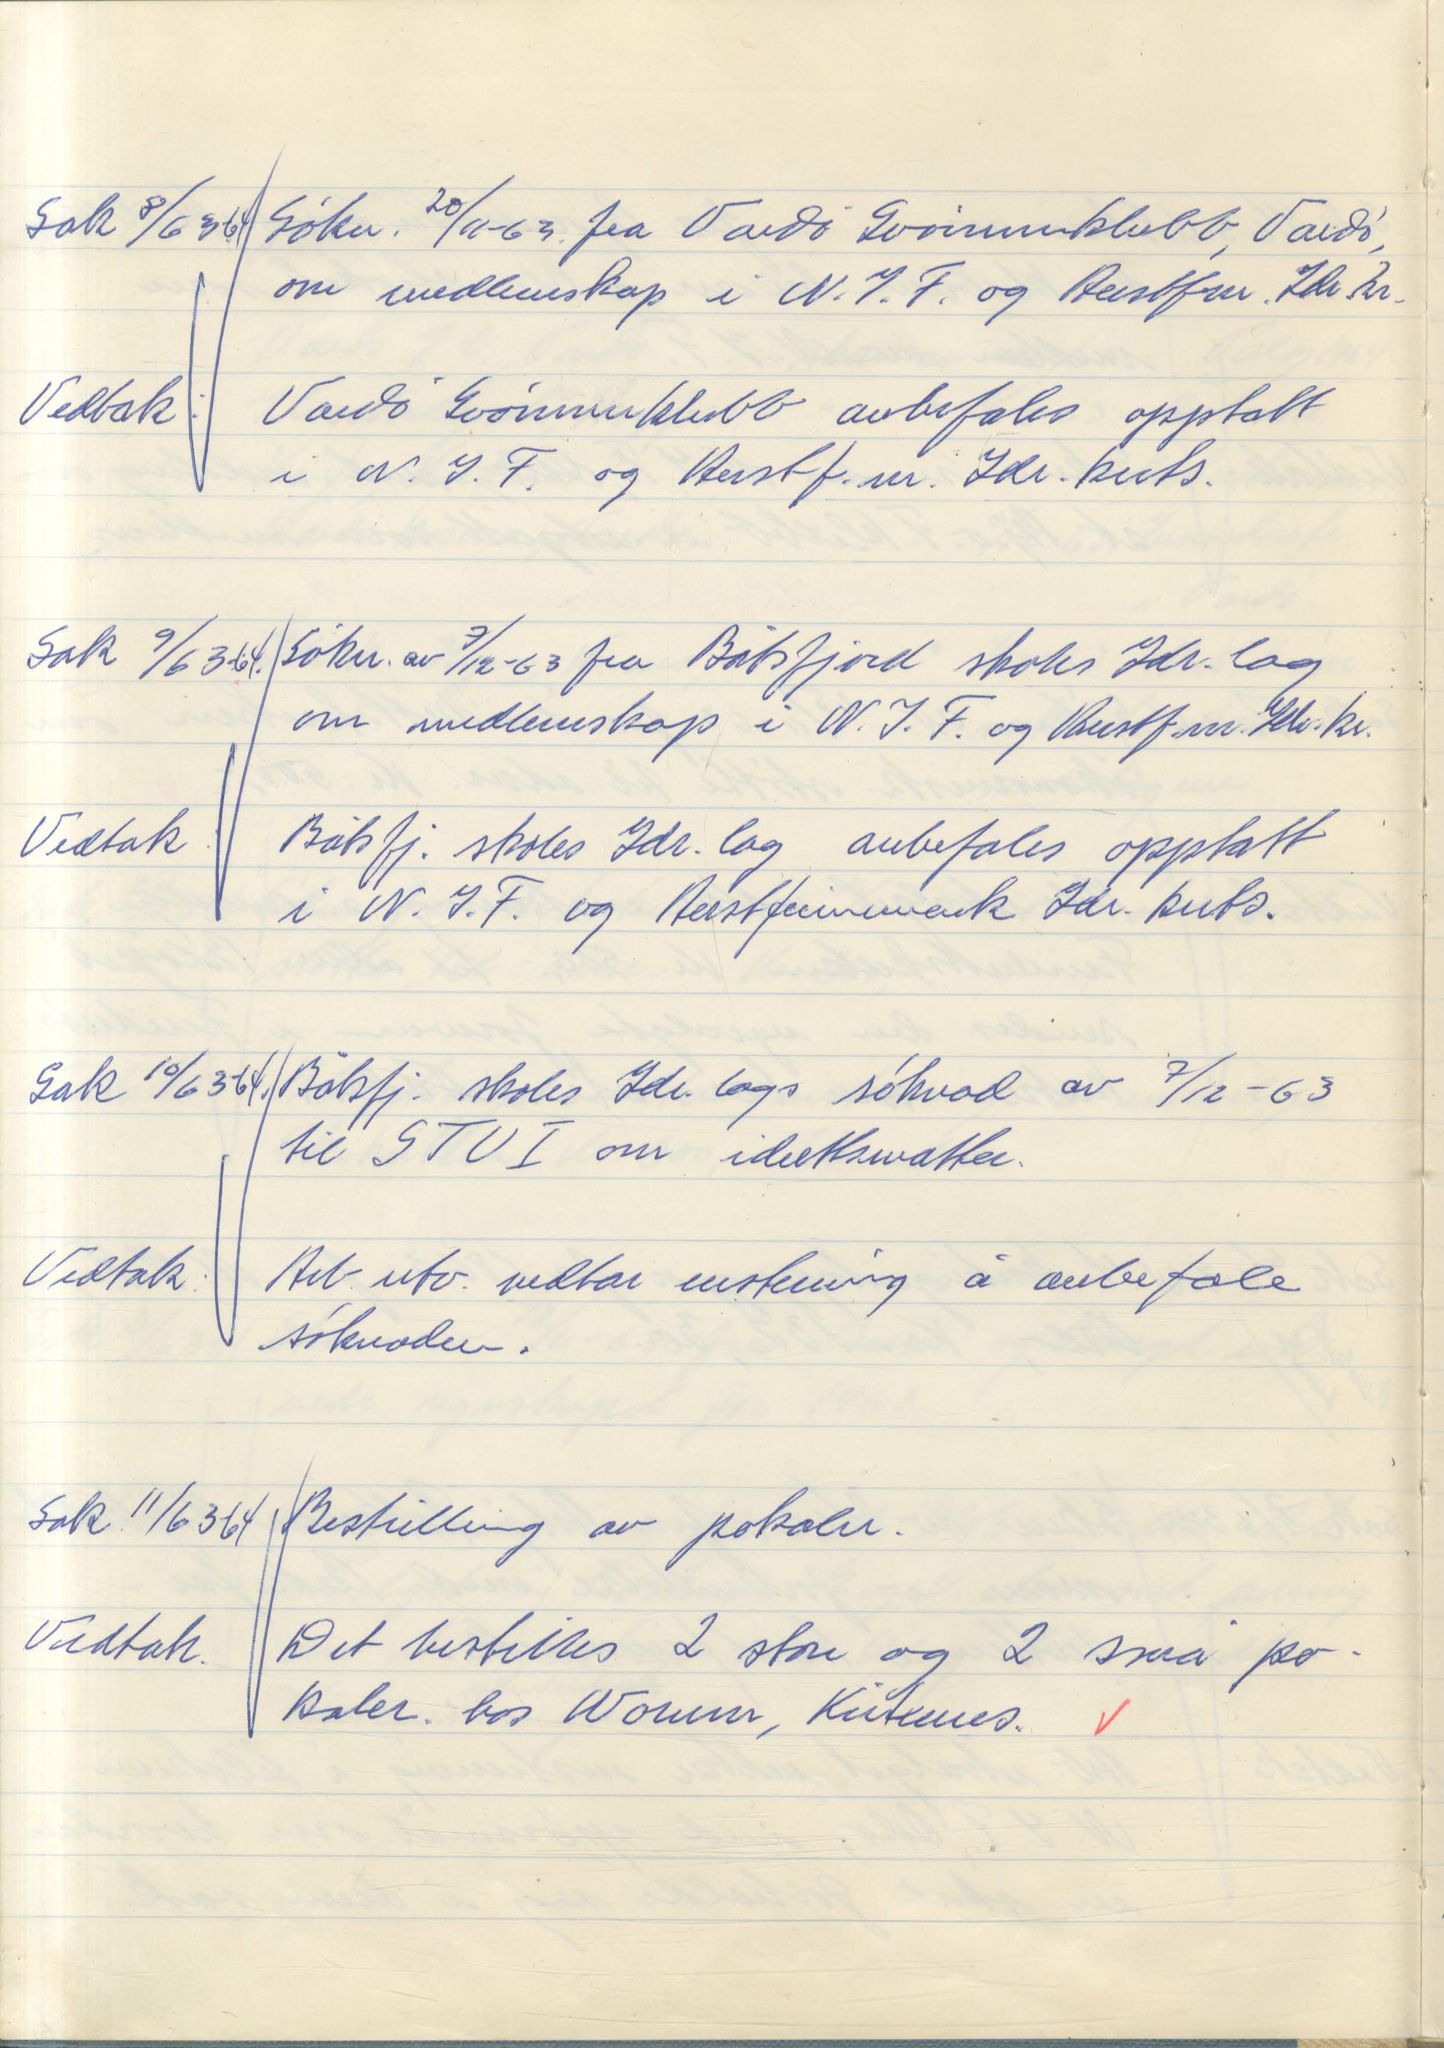 Sak 8/63-64 Søkn. 20/11-63 fra Vardø Svømmeklubb, Vardø,
om medlemskap i N.I.F. og Austf.m. Idr.kr.
Vedtak: Vardø Svømmeklubb anbefales opptatt
i N.I.F. og Austf.m. Idr.krets.
Sak 9/63-64. Søkn. av 7/12-63 fra Båtsfjord skoles Idr.lag
om medlemskap i N.I.F. og Austf.m. Idr.kr.
Vedtak: Båtsfj. skoles Idr.lag anbefales opptatt
i N.I.F. og Austfinnmark Idr.krets.
Sak 10/63-64. Båtsfj. skoles Idr.lags søknad av 7/12-63
til STUI om idrettsmatter.
Vedtak: Arb.utv. vedtar enstemmig å anbefale
søknaden.
Sak 11/63-64 Bestilling av pokaler.
Vedtak. Det bestilles 2 store og 2 små po-
kaler hos Wormr, Kirkenes.